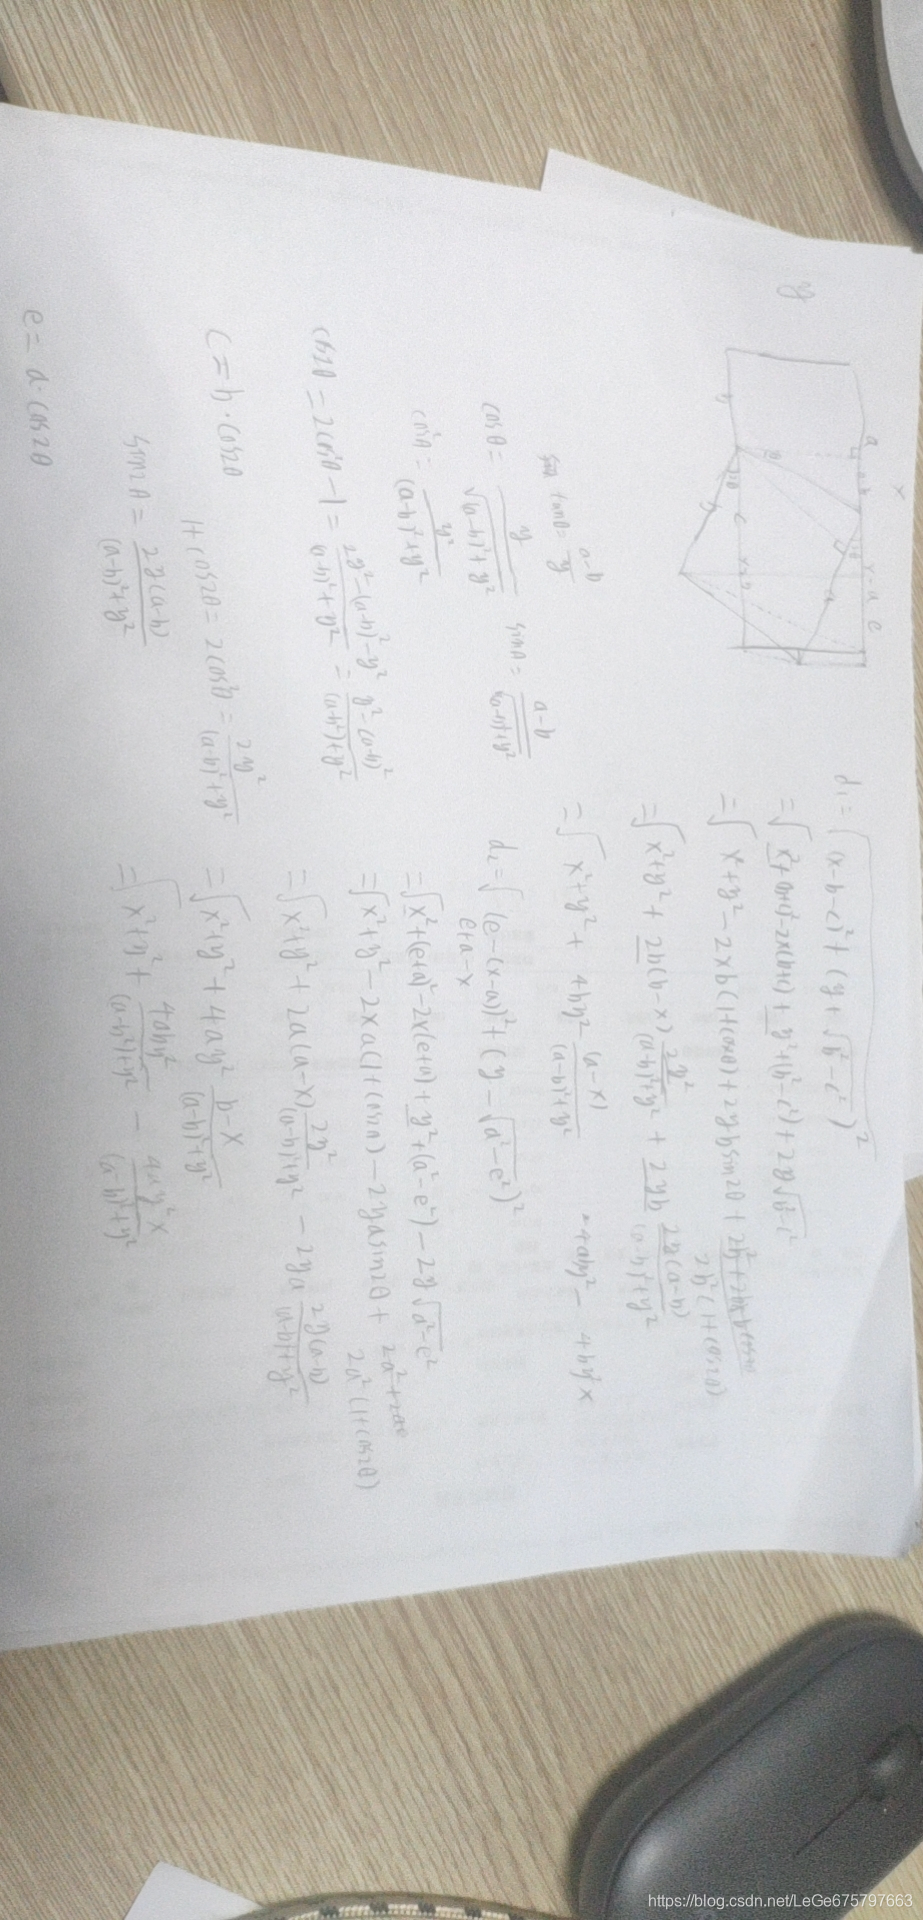 x
y
a
a-b
x-a
e
b
θ
2θ
c
x-b
b
a
tanθ = (a-b)/y
cosθ = y/√((a-b)²+y²) sinθ = (a-b)/√((a-b)²+y²)
cos²θ = y²/((a-b)²+y²)
cos2θ = 2cos²θ-1 = (2y²-(a-b)²-y²)/((a-b)²+y²) = (y²-(a-b)²)/((a-b)²+y²)
c = b·cos2θ
1+cos2θ = 2cos²θ = 2y²/((a-b)²+y²)
sin2θ = 2y(a-b)/((a-b)²+y²)
e = a·cos2θ
d₁ = √((x-b-c)²+(y+√(b²-c²))²)
= √(x²+(b+c)²-2x(b+c)+y²+(b²-c²)+2y√(b²-c²))
= √(x²+y²-2xb(1+cos2θ)+2ybsin2θ+
2b²(1+cos2θ)
= √(x²+y²+2b(b-x) 2y²/((a-b)²+y²) + 2yb 2y(a-b)/((a-b)²+y²)
= √(x²+y²+4by² (a-x)/((a-b)²+y²)
4aby² - 4by²x
d₂ = √((e-(x-a))²+(y-√(a²-e²))²
e+a-x
= √(x²+(e+a)²-2x(e+a)+y²+(a²-e²)-2y√(a²-e²)
= √(x²+y²-2xa(1+cos2θ)-2yasin2θ+
2a²(1+cos2θ)
= √(x²+y²+2a(a-x) 2y²/((a-b)²+y²) - 2ya 2y(a-b)/((a-b)²+y²)
= √(x²+y²+4ay² (b-x)/((a-b)²+y²)
= √(x²+y²+ 4aby²/((a-b)²+y²) - 4ay²x/((a-b)²+y²)
https://blog.csdn.net/LeGe675797663